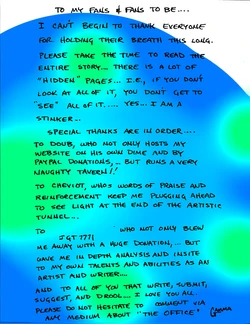 TO MY FANS & FANS TO BE....
I CAN'T BEGIN TO THANK EVERYONE
FOR HOLDING THEIR BREATH THIS LONG.
PLEASE TAKE THE TIME TO READ THE
ENTIRE STORY... THERE IS A LOT OF
"HIDDEN" PAGES... I.E., IF YOU DON'T
LOOK AT ALL OF IT, YOU DON'T GET TO
"SEE" ALL OF IT..... YES... I AM A
STINKER...
SPECIAL THANKS ARE IN ORDER....
TO DOUB, WHO NOT ONLY HOSTS MY
WEBSITE ON HIS OWN DIME AND BY
PAYPAL DONATIONS,... BUT RUNS A VERY
NAUGHTY TAVERN!!
TO CHEVIOT, WHO'S WORDS OF PRAISE AND
REINFORCEMENT KEEP ME PLUGGING AHEAD
TO SEE LIGHT AT THE END OF THE ARTISTIC
TUNNEL...
TO JGT7771 WHO NOT ONLY BLEW
ME AWAY WITH A HUGE DONATION,... BUT
GAVE ME IN DEPTH ANALYSIS AND INSITE
TO MY OWN TALENTS AND ABILITIES AS AN
ARTIST AND WRITER...
AND TO ALL OF YOU THAT WRITE, SUBMIT,
SUGGEST, AND DROOL... I LOVE YOU ALL
PLEASE DO NOT HESITATE TO COMMENT VIA
ANY MEDIUM ABOUT "THE OFFICE"